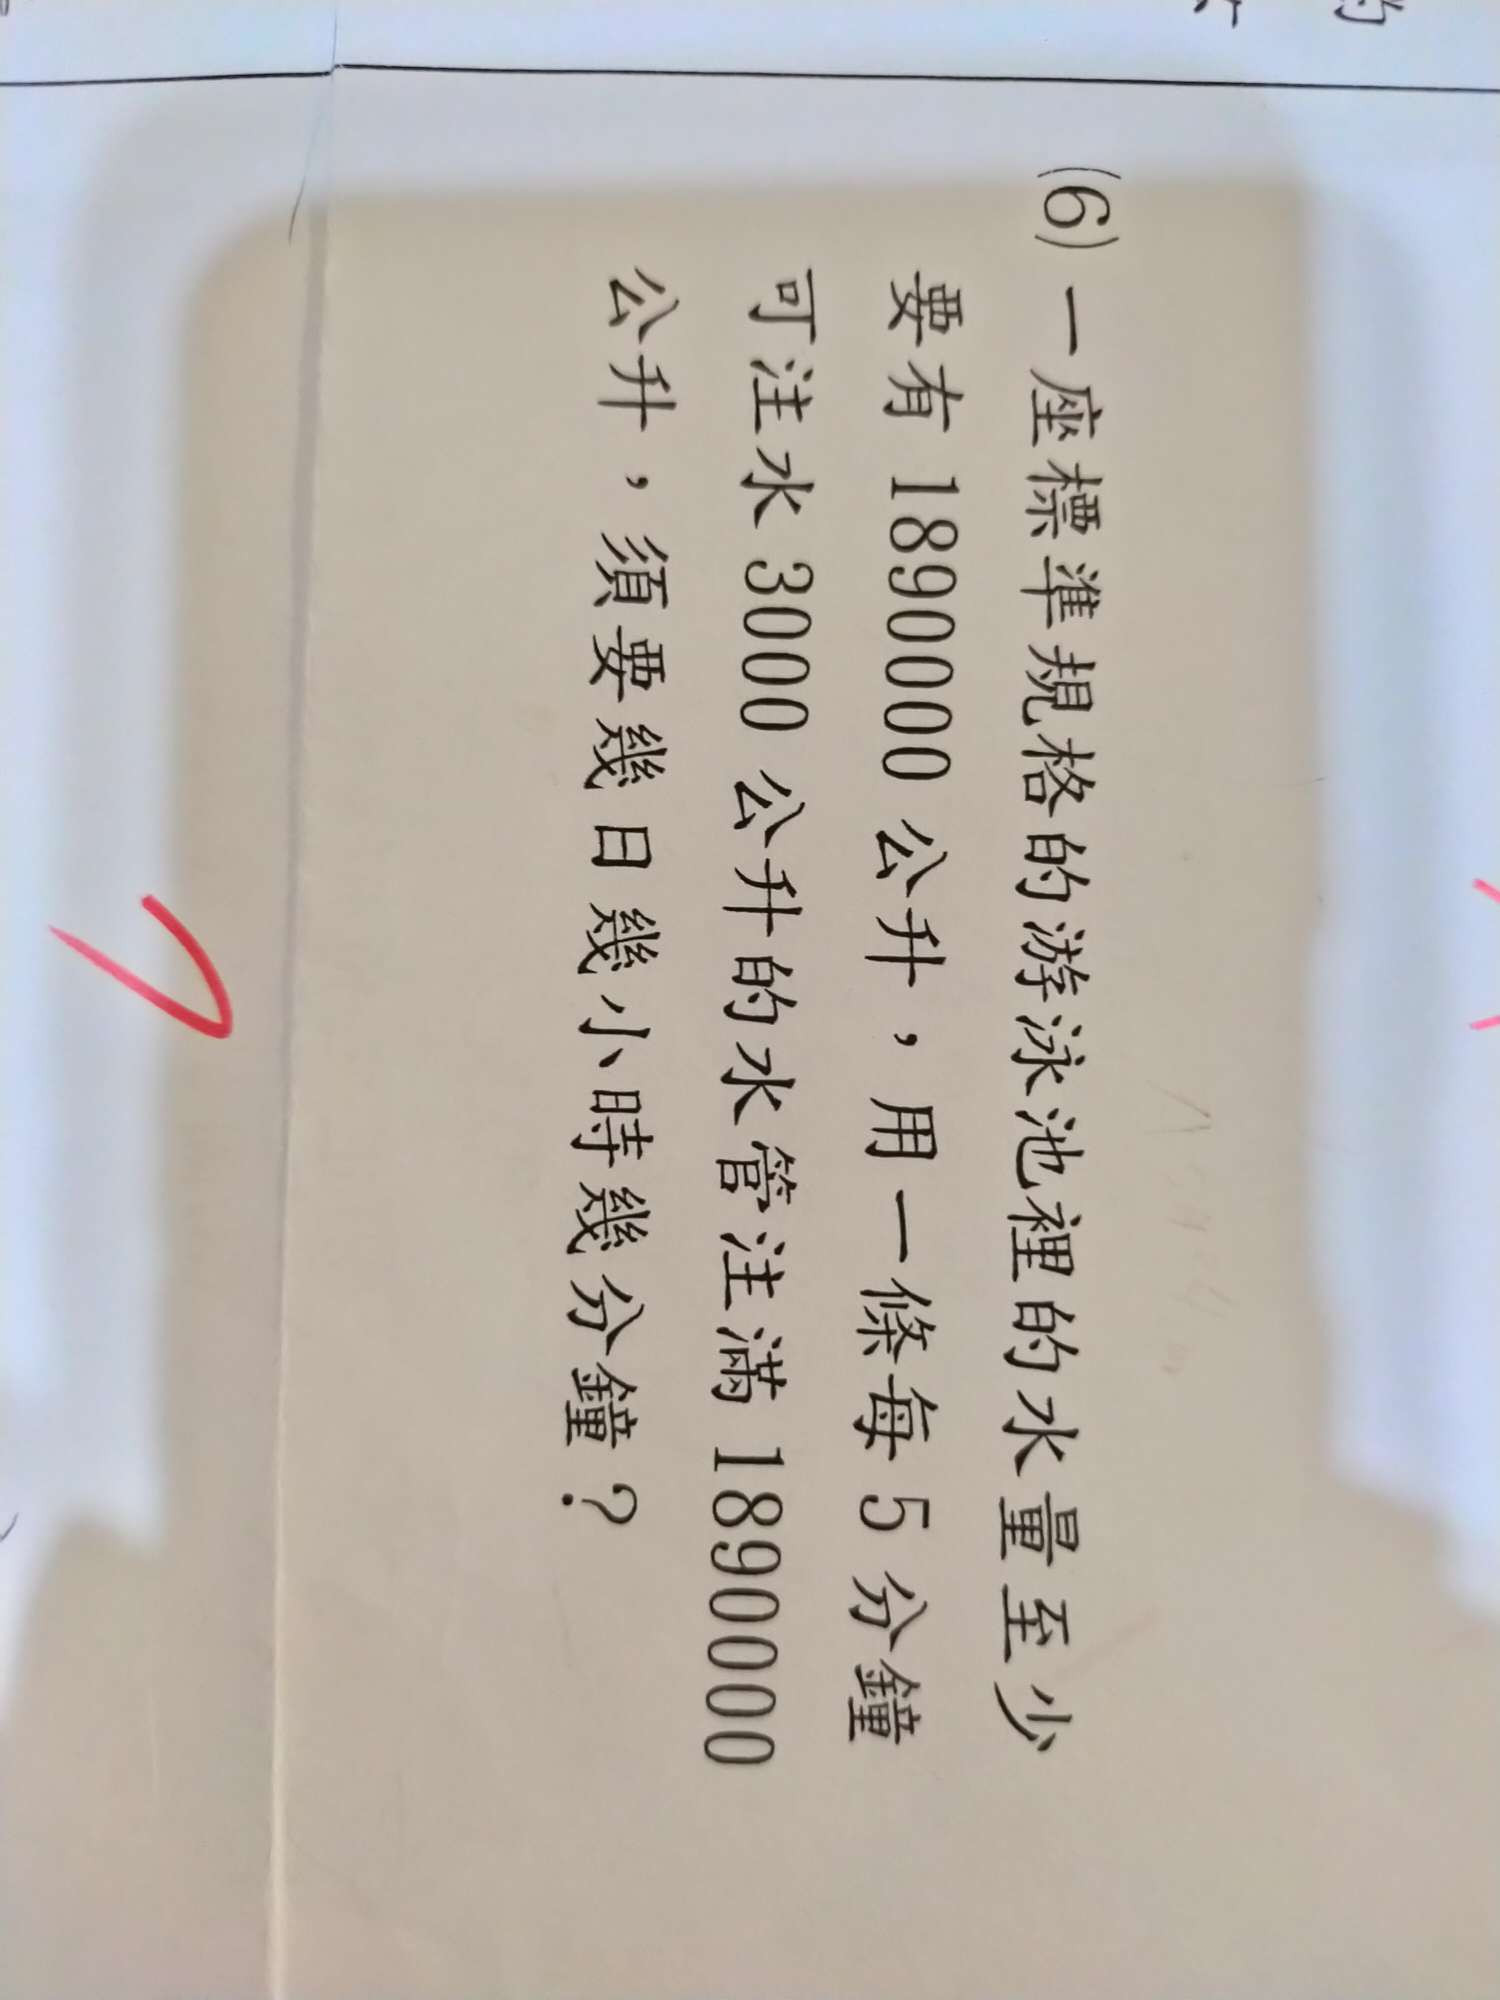 (6)一座標準規格的游泳池裡的水量至少
要有1890000公升，用一條每5分鐘
可注水3000公升的水管注滿1890000
公升，須要幾日幾小時幾分鐘？